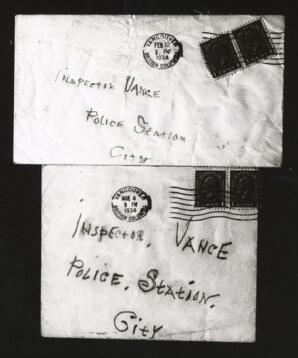 VANCOUVER
FEB 12
5 PM
1934
BRITISH COLUMBIA
INSPECTOR VANCE
POLICE STATION
CITY
VANCOUVER
5 PM
1934
BRITISH COLUMBIA
INSPECTOR, VANCE
POLICE, STATION,
CITY